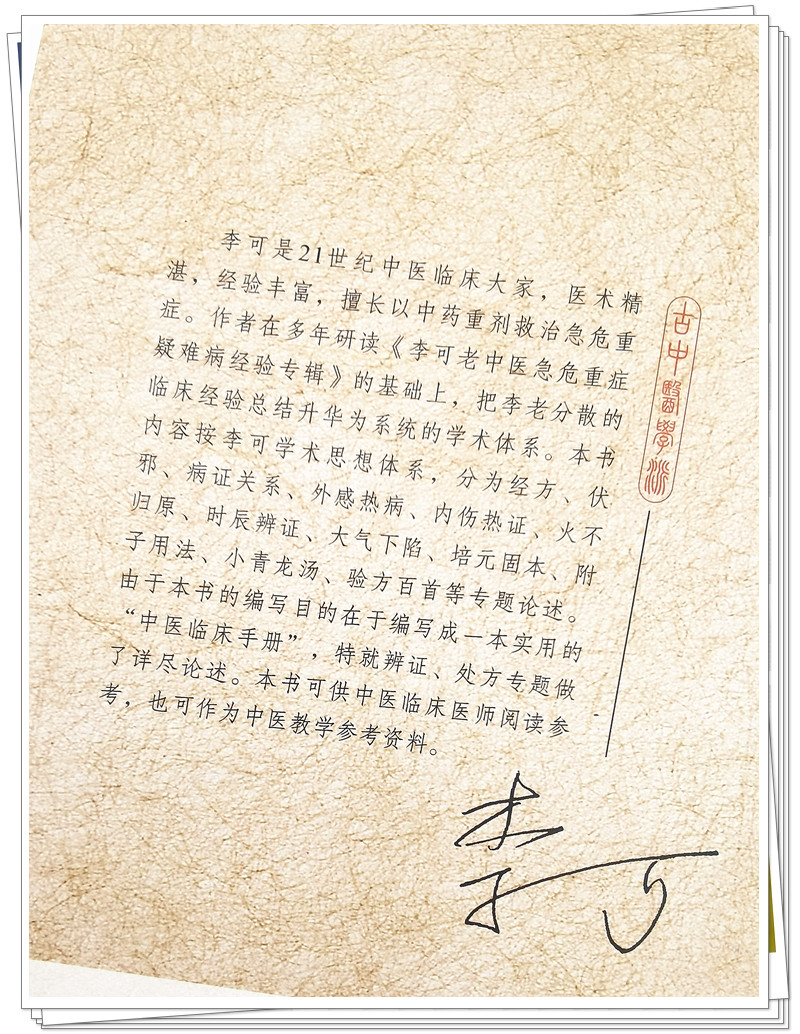 李可是21世纪中医临床大家，医术精
湛，经验丰富，擅长以中药重剂救治急危重
症。作者在多年研读《李可老中医急危重症
疑难病经验专辑》的基础上，把李老分散的
临床经验总结升华为系统的学术体系。本书
内容按李可学术思想体系，分为经方、伏
邪、病证关系、外感热病、内伤热证、火不
归原、时辰辨证、大气下陷、培元固本、附
子用法、小青龙汤、验方百首等专题论述。
由于本书的编写目的在于编写成一本实用的
“中医临床手册”，特就辨证、处方专题做
了详尽论述。本书可供中医临床医师阅读参
考，也可作为中医教学参考资料。
古中醫學派
李可